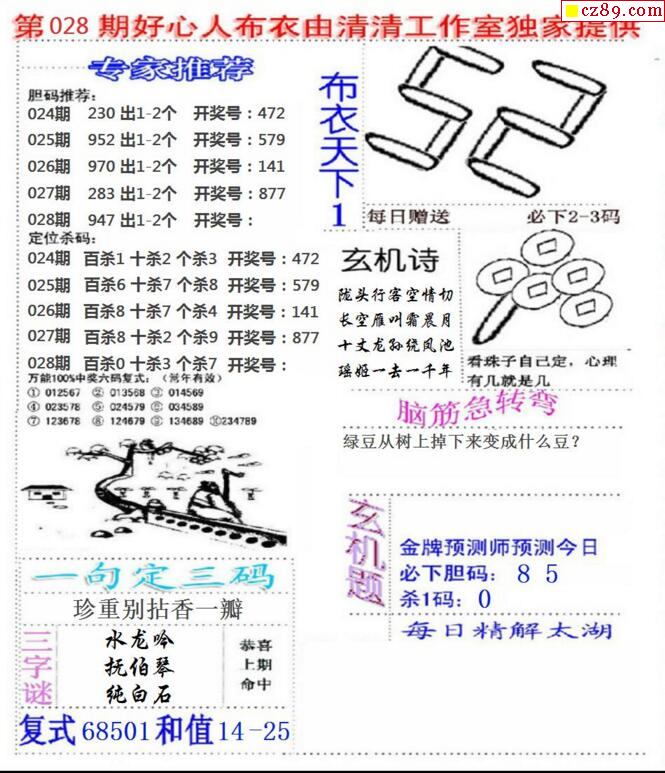 cz89.com
第028期好心人布衣由清清工作室独家提供
专家推荐
胆码推荐：
024期 230 出1-2个 开奖号：472
025期 952 出1-2个 开奖号：579
026期 970 出1-2个 开奖号：141
027期 283 出1-2个 开奖号：877
028期 947 出1-2个 开奖号：
定位杀码：
024期 百杀1 十杀2 个杀3 开奖号：472
025期 百杀6 十杀7 个杀8 开奖号：579
026期 百杀8 十杀7 个杀4 开奖号：141
027期 百杀8 十杀2 个杀9 开奖号：877
028期 百杀0 十杀3 个杀7 开奖号：
万能100%中奖六码复式：（常年有效）
① 012567 ② 013568 ③ 014569
④ 023578 ⑤ 024579 ⑥ 034589
⑦ 123678 ⑧ 124679 ⑨ 134689 ⑩234789
一句定三码
珍重别拈香一瓣
三字谜
水龙吟
抚伯琴
纯白石
恭喜
上期
命中
复式 68501 和值 14-25
布衣天下1
52
每日赠送 必下2-3码
玄机诗
陇头行客空情切
长空雁叫霜晨月
十丈龙孙绕凤池
瑶姬一去一千年
看珠子自己定，心理
有几就是几
脑筋急转弯
绿豆从树上掉下来变成什么豆？
玄机题
金牌预测师预测今日
必下胆码： 8 5
杀1码： 0
每日精解太湖